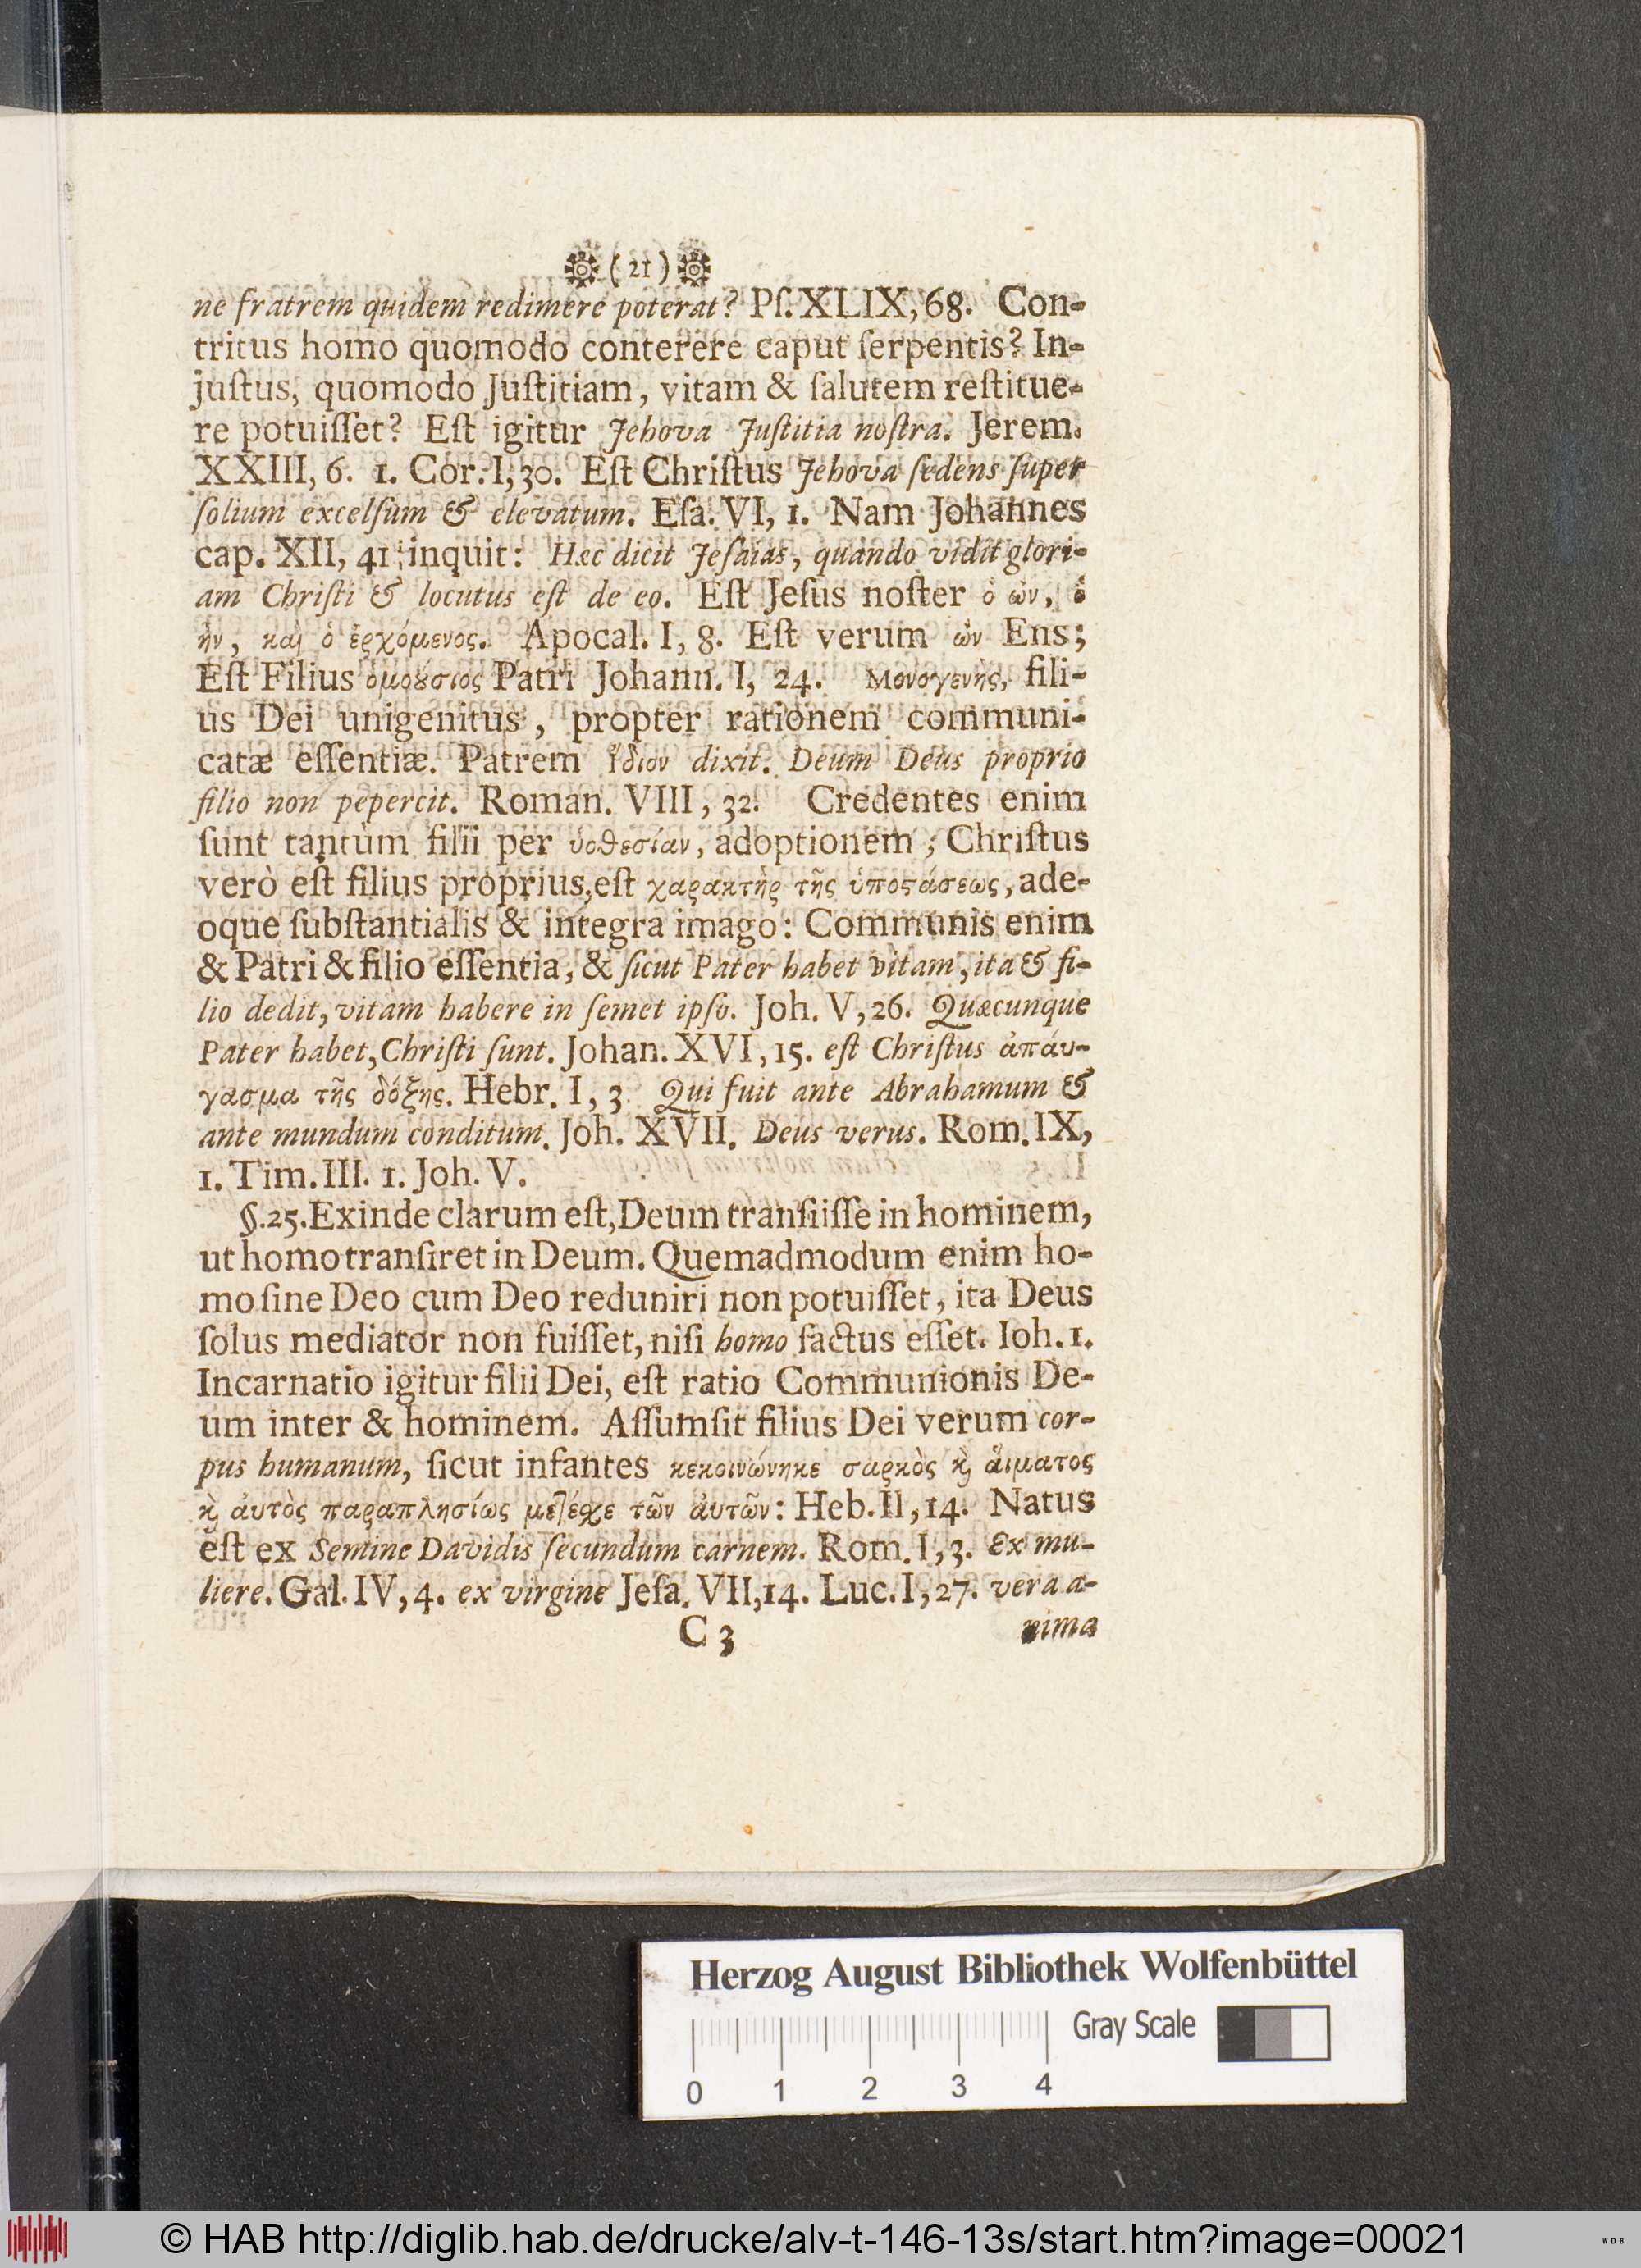 ( 21 )
ne fratrem quidem redimere poterat? Pſ. XLIX, 68. Con-
tritus homo quomodo conterere caput ſerpentis? In-
juſtus, quomodo Juſtitiam, vitam & ſalutem reſtitue-
re potuiſſet? Eſt igitur Jehova Juſtitia noſtra. Jerem.
XXIII, 6. 1. Cor. I, 30. Eſt Chriſtus Jehova ſedens ſuper
ſolium excelſum & elevatum. Eſa. VI, 1. Nam Johannes
cap. XII, 41 inquit: Hæc dicit Jeſaias, quando vidit glori-
am Chriſti & locutus eſt de eo. Eſt Jeſus noſter ὁ ὠν, ὁ
ἠν, καὶ ὁ ἐρχόμενος. Apocal. I, 8. Eſt verum ὠν Ens;
Eſt Filius ὁμοȣ́σιος Patri Johann. I, 24. Μονογενὴς, fili-
us Dei unigenitus, propter rationem communi-
catæ eſſentiæ. Patrem ἴδιον dixit. Deum Deus proprio
filio non pepercit. Roman. VIII, 32. Credentes enim
ſunt tantùm filii per ὑοθεσίαν, adoptionem; Chriſtus
verò eſt filius proprius, eſt χαρακτὴρ τῆς ὑποϛάσεως, ade-
oque ſubſtantialis & integra imago: Communis enim
& Patri & filio eſſentia, & ſicut Pater habet vitam, ita & fi-
lio dedit, vitam habere in ſemet ipſo. Joh. V, 26. Quæcunque
Pater habet, Chriſti ſunt. Johan. XVI, 15. eſt Chriſtus ἀπάυ-
γασμα τῆς δόξης. Hebr. I, 3 Qui fuit ante Abrahamum &
ante mundum conditum. Joh. XVII. Deus verus. Rom. IX,
1. Tim. III. 1. Joh. V.
§. 25. Exinde clarum eſt, Deum tranſiiſſe in hominem,
ut homo tranſiret in Deum. Quemadmodum enim ho-
mo ſine Deo cum Deo reduniri non potuiſſet, ita Deus
ſolus mediator non fuiſſet, niſi homo factus eſſet. Ioh. 1.
Incarnatio igitur filii Dei, eſt ratio Communionis De-
um inter & hominem. Aſſumſit filius Dei verum cor-
pus humanum, ſicut infantes κεκοινώνηκε σαρκὸς ϗ ἅιματος
ϗ ἀυτὸς παραπλησίως μετέχε τῶν ἀυτῶν: Heb. II, 14. Natus
eſt ex Semine Davidis ſecundum carnem. Rom. I, 3. Ex mu-
liere. Gal. IV, 4. ex virgine Jeſa. VII, 14. Luc. I, 27. vera a-
C 3 nima
Herzog August Bibliothek Wolfenbüttel
Gray Scale
0 1 2 3 4
© HAB http://diglib.hab.de/drucke/alv-t-146-13s/start.htm?image=00021
WDB